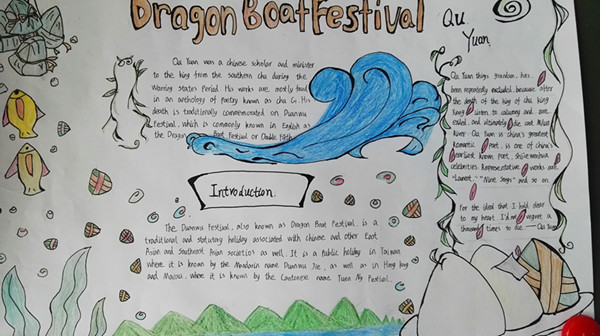 Dragon Boat Festival
Qu
Yuan
Qu Yuan was a chinese scholar and minister
to the king from the southern chu during the
Warring States Period. His works are mostly found
in an anthology of poetry known as chu Ci. His
death is traditionally commemorated on Duanwu
Festival, which is commonly known in English as
the Dragon Boat Festival or Double Fifth
Introduction
The Duanwu Festival, also known as Dragon Boat Festival. is a
traditional and statutory holiday associated with chinese and other East
Asian and Southeast Asian societies as well. It is a public holiday in Taiwan
where it is known by the Mandarin name Duanwu Jie, as well as in Hong Kong
and Macau, where it is known by the Cantonese name Tuen Ng Festival.
Qu Yuan things grandson, has
been repeatedly excluded, because after
the death of the king of chu king
listen to calumny and was
exiled, and ultimately die out Miluo
River. Qu Yuan is china's greatest
romantic poet, is one of china's
earliest known poet,
celebrities. Representative works are
"Lament," "Nine Songs" and so on
For the ideal that I hold dear
to my heart, I'd not regret a
thousand times to die Qu Yuan